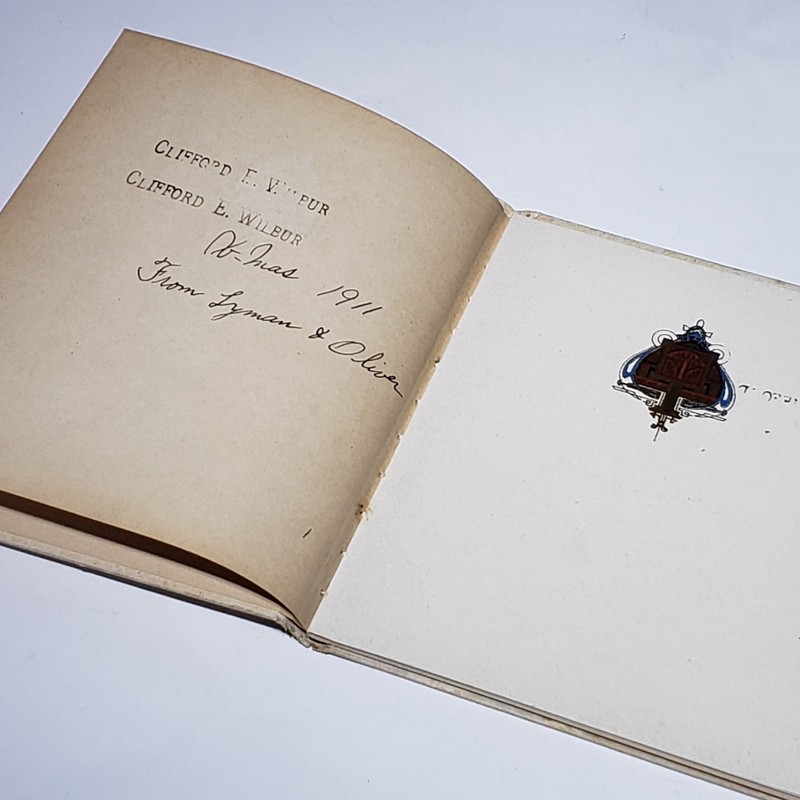 CLIFFORD E. WILBUR
CLIFFORD E. WILBUR
X-mas 1911
From Lyman & Oliver